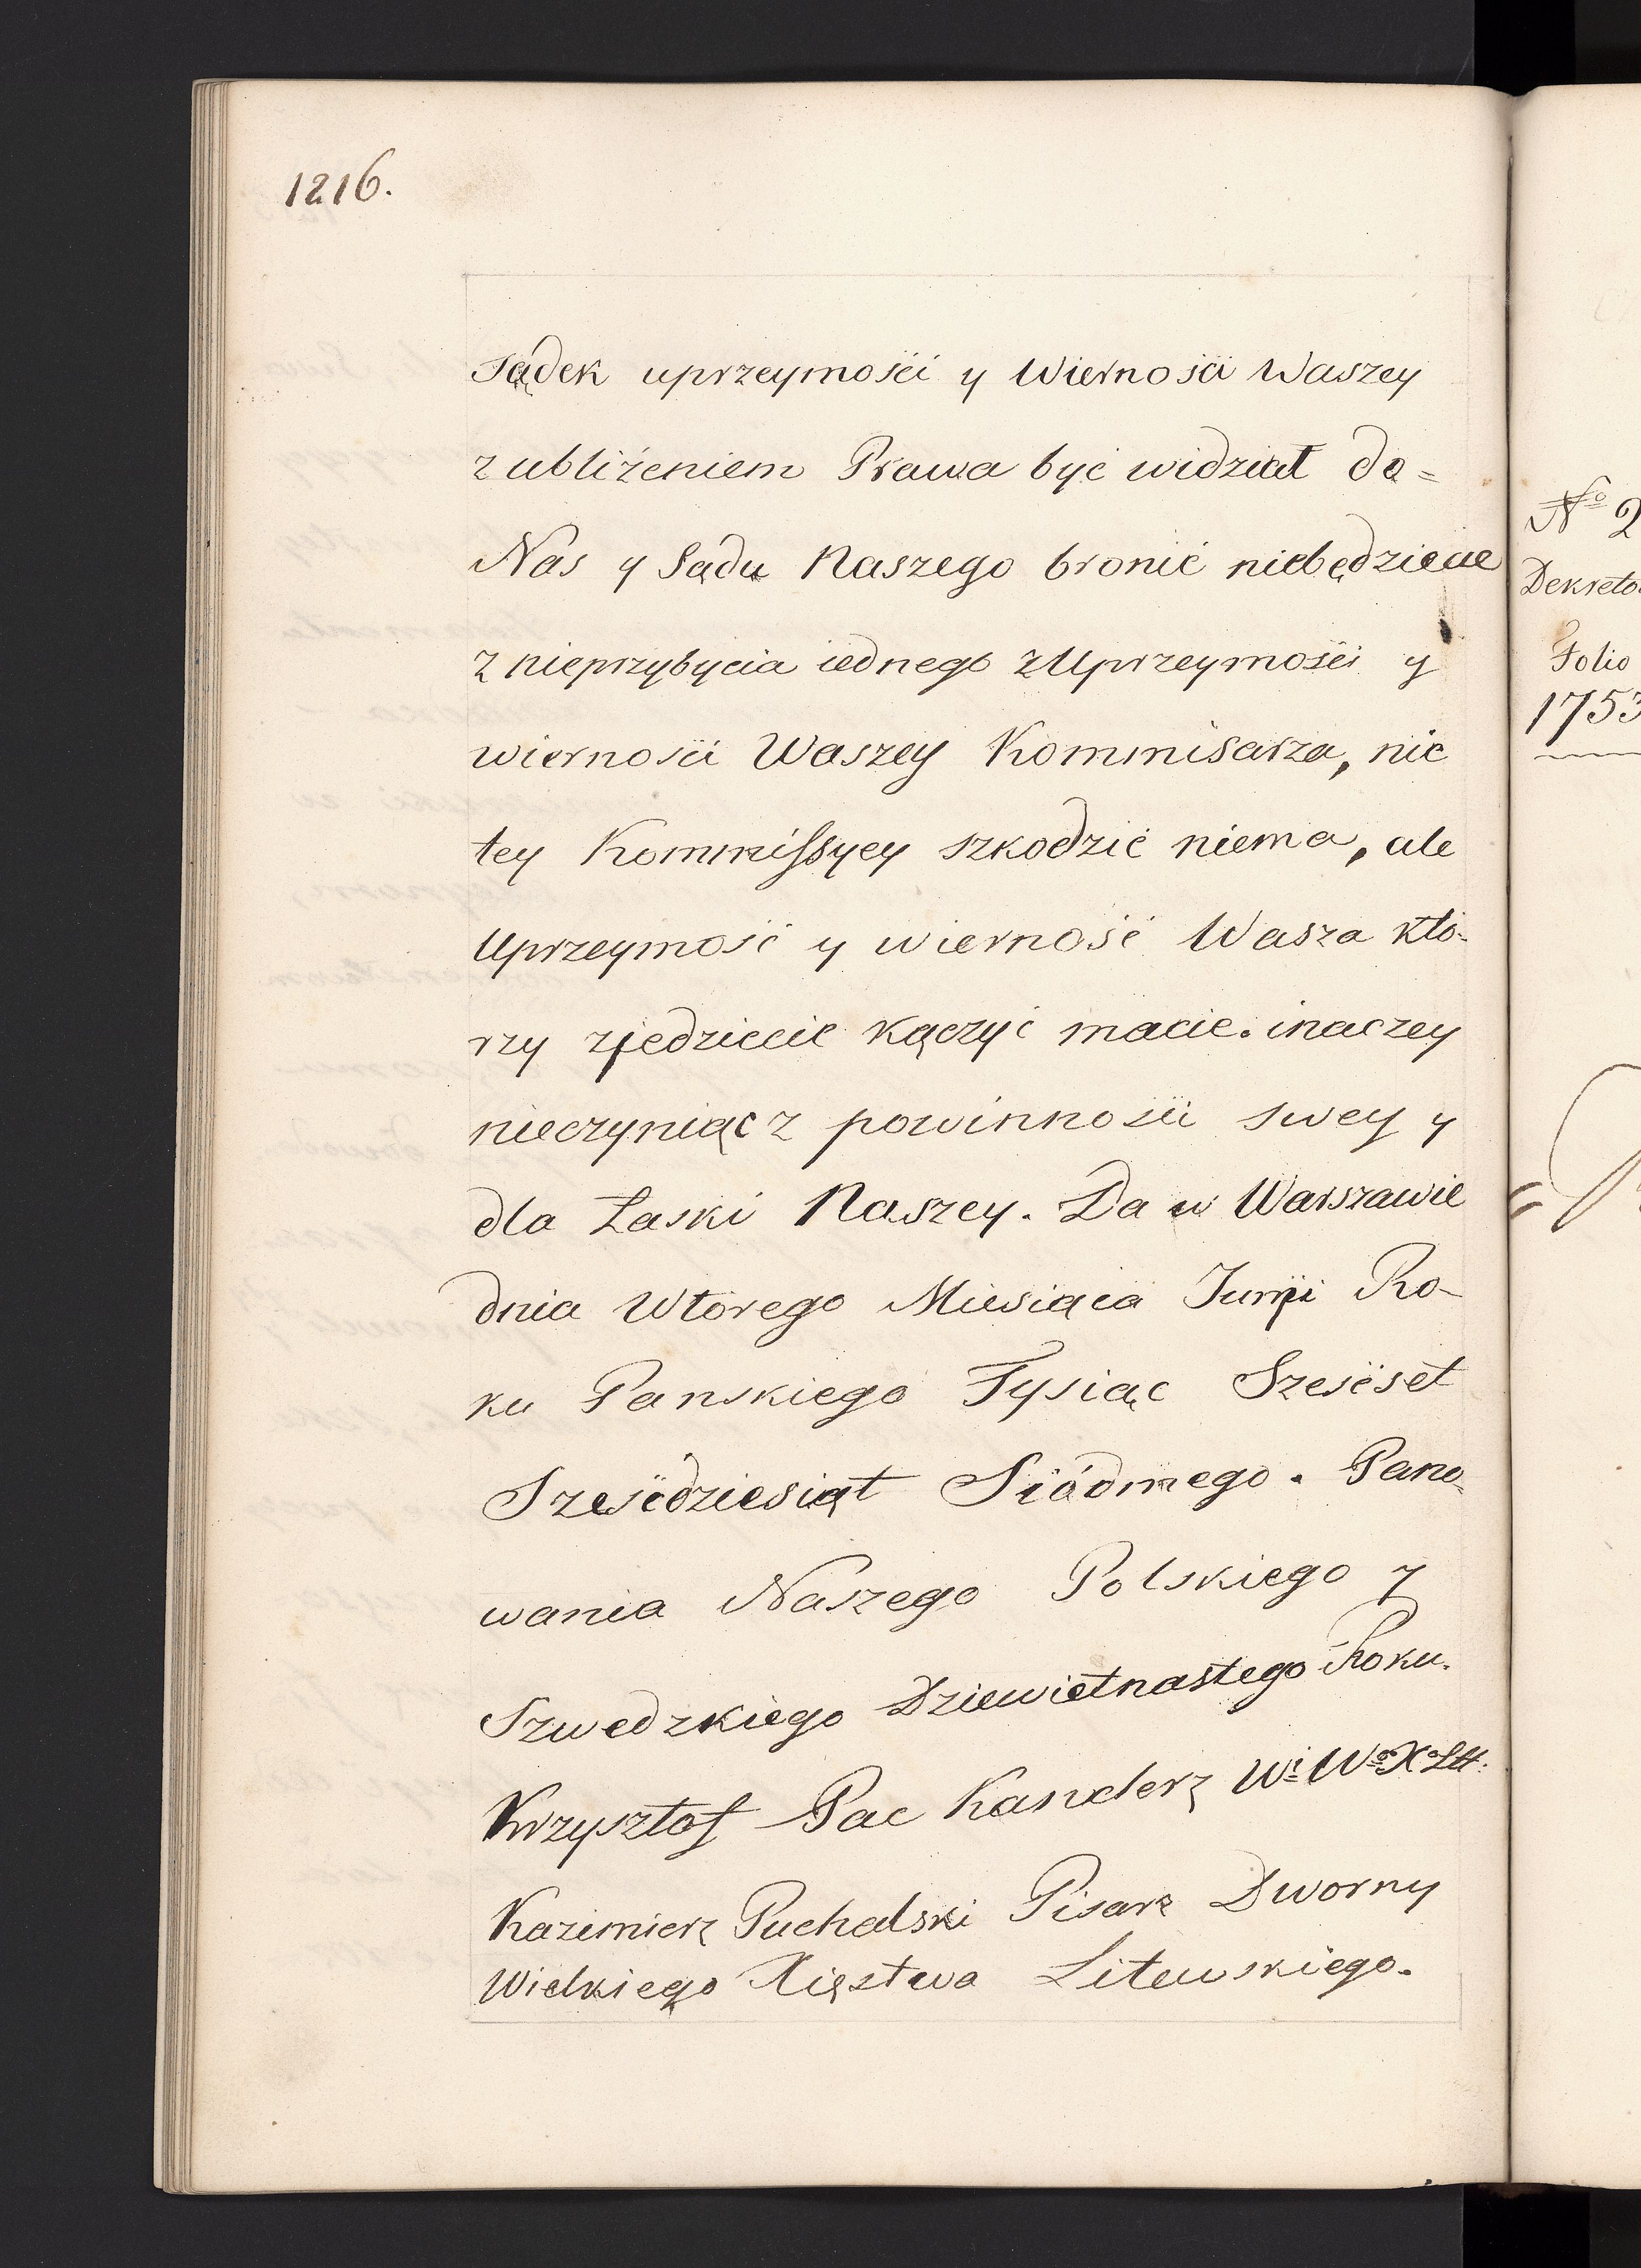 1216.
sądek uprzeymości y Wierności Waszey
z ubliżeniem Prawa być widział do=
Nas y Sądu Naszego bronić niebędziecie
z nieprzybycia iednego z Uprzeymości y
wierności Waszey Kommisarza, nic
tey Kommissyey szkodzić niema, ale
Uprzeymość y wierność Wasza któ-
rzy zjedziecie kączyć macie. inaczey
nieczyniąc z powinności swey y
dla Łaski Naszey. Da w Warszawie
dnia Wtorego Miesiąca Junÿi Ro-
ku Panskiego Tysiąc Szescset
Szescdziesiąt Siódmego. Pano-
wania Naszego Polskiego y
Szwedzkiego Dziewietnastego Roku.
Krzysztof Pac Kanclerz Wi: Wo X Litt:
Kazimierz Puchalski Pisarz Dworny
Wielkiego Xięstwa Litewskiego.
No 2
Dekreto
Folio
1753